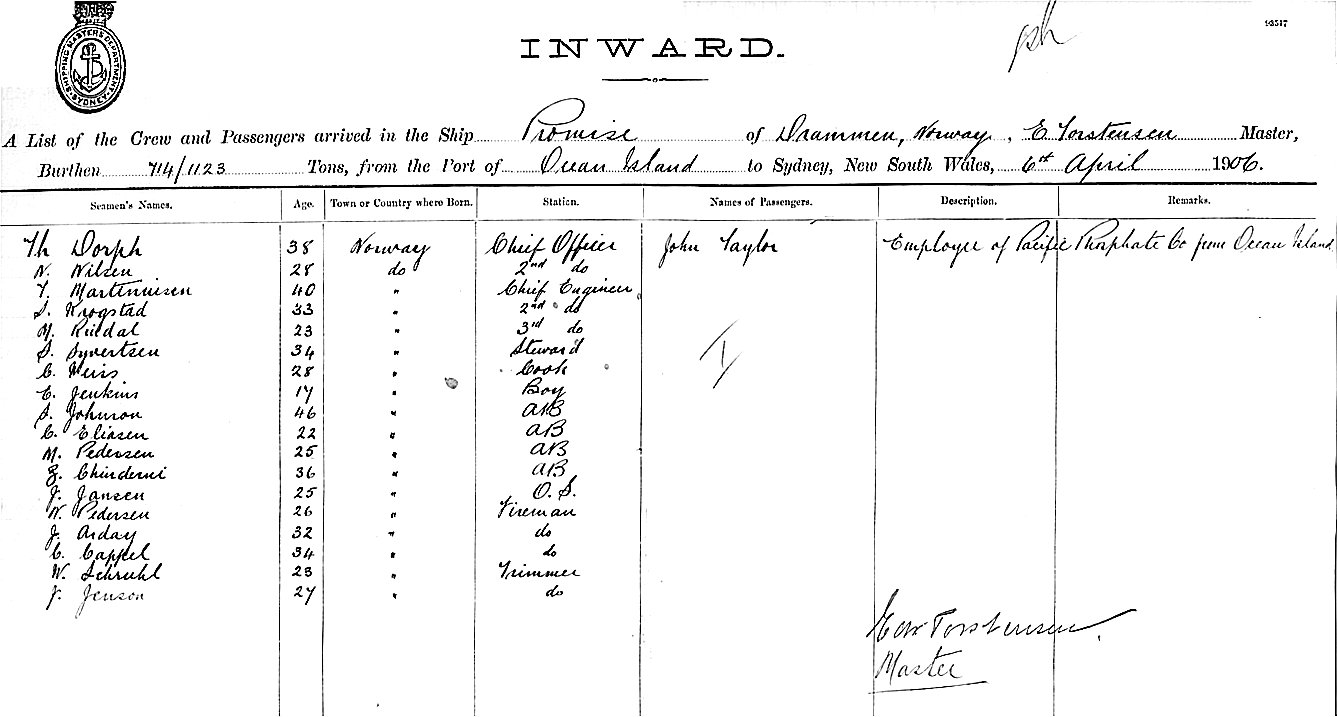 93517
SHIPPING MASTERS DEPARTMENT SYDNEY
INWARD.
A List of the Crew and Passengers arrived in the Ship Promise of Drammen, Norway, E Torstensen Master,
Burthen 714/1123 Tons, from the Port of Ocean Island to Sydney, New South Wales, 6th April 1906.
Seamen's Names. Age. Town or Country where Born. Station. Names of Passengers. Description. Remarks.
Th Dorph 38 Norway Chief Officer John Taylor Employee of Pacific Phosphate Co from Ocean Island
N. Nilsen 28 do 2nd do
T. Martinuisen 40 " Chief Engineer
S. Krogstad 33 " 2nd do
M. Riedal 23 " 3rd do
S. Syvertsen 34 " Steward
C. Weiss 28 " Cook
E. Jenkins 17 " Boy
S. Johnson 46 " AB
C. Eliasen 22 " AB
M. Pedersen 25 " AB
Z. Chinderni 36 " AB
J. Jansen 25 " O.S.
N. Pedersen 26 " Fireman
J. Arday 32 " do
C. Cappel 34 " do
W. Schruhl 23 " Trimmer
J. Jenson 27 " do
Torstensen
Master